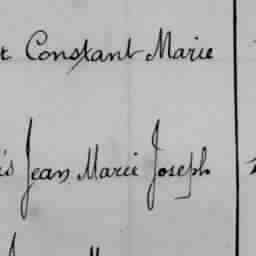 Constant Marie
Jean Marie Joseph